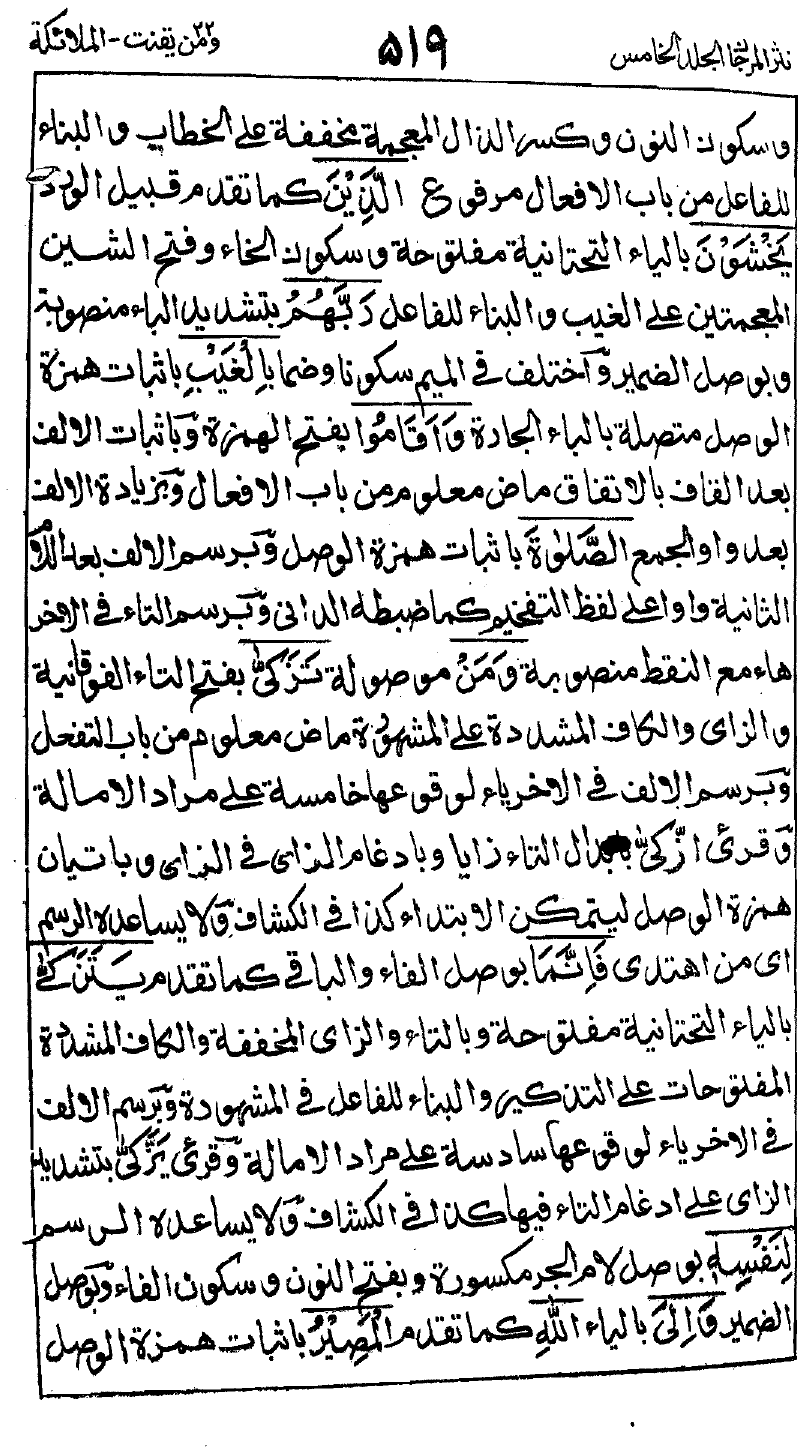 نثر المرجان الجلد الخامس ۵۱۹ ومن يقنت ۲۲ - الملائكة
وسكون النون وكسر الذال المعجمة مخففة على الخطاب والبناء
للفاعل من باب الافعال مرفوع الَّذِيْنَ كما تقدم قبيل الورد
يَخْشَوْنَ بالياء التحتانية مفتوحة وسكون الخاء وفتح الشين
المعجمتين على الغيب والبناء للفاعل رَبَّهُمْ بتشديد الباء منصوبة
وبوصل الضمير وّاختلف في الميم سكونا وضما بِالْغَيْبِ باثبات همزة
الوصل متصلة بالباء الجارة وَاَقَامُوا بفتح الهمزة وّباثبات الالف
بعد القاف بالاتفاق ماض معلوم من باب الافعال وّبزيادة الالف
بعد واو الجمع الصَّلٰوةَ باثبات همزة الوصل وّبرسم الالف بعد اللام
الثانية واوا على لفظ التفخيم كما ضبطه الداني وّبرسم التاء في الاخر
هاء مع النقط منصوبة وَمَنْ موصولة تَزَكّٰى بفتح التاء الفوقانية
والزاى والكاف المشددة على المشهورة ماض معلوم من باب التفعل
وّبرسم الالف في الاخر ياء لوقوعها خامسة على مراد الامالة
وّقرئ ازَّكّٰى بابدال التاء زايا وبادغام الزاى في الزاى وباتيان
همزة الوصل ليتمكن الابتداء كذا في الكشاف وّلا يساعده الرسم
اى من اهتدى فَاِنَّمَا بوصل الفاء والباقي كما تقدم يَتَزَكّٰى
بالياء التحتانية مفتوحة وبالتاء والزاى المخففة والكاف المشددة
المفتوحات على التذكير والبناء للفاعل في المشهورة وّبرسم الالف
في الاخر ياء لوقوعها سادسة على مراد الامالة وّقرئ يَزَّكّٰى بتشديد
الزاى على ادغام التاء فيها كذا في الكشاف وّلا يساعده الرسم
لِنَفْسِهٖ بوصل لام الجر مكسورة وبفتح النون وسكون الفاء وّبوصل
الضمير وَاِلَى بالياء اللّٰهِ كما تقدم الْمَصِيْرُ باثبات همزة الوصل